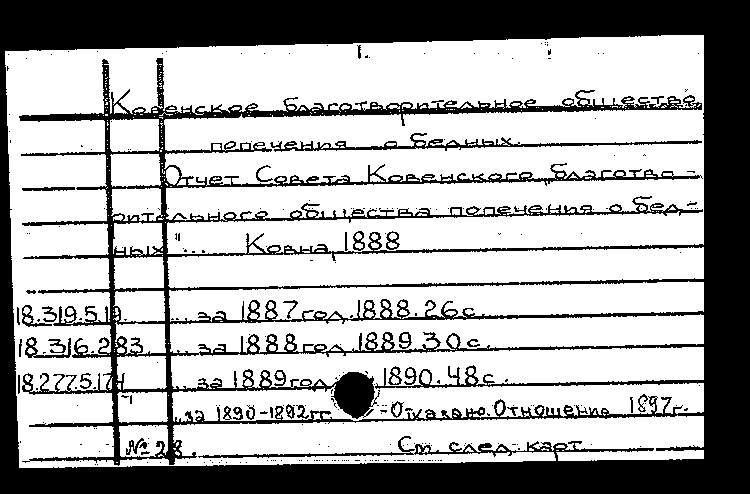 1.
Ковенское благотворительное общество
попечения о бедных.
Отчет Совета Ковенского „благотво-
рительного общества попечения о бед-
ных"... Ковна, 1888
18.319.5.19. ... за 1887 год. 1888. 26 с.
18.316.2.83. ... за 1888 год. 1889. 30 с.
18.277.5.174 ... за 1889 год. 1890. 48 с.
... за 1890-1892 гг. - Отказано. Отношение 1897 г.
№ 28. См. след. карт.